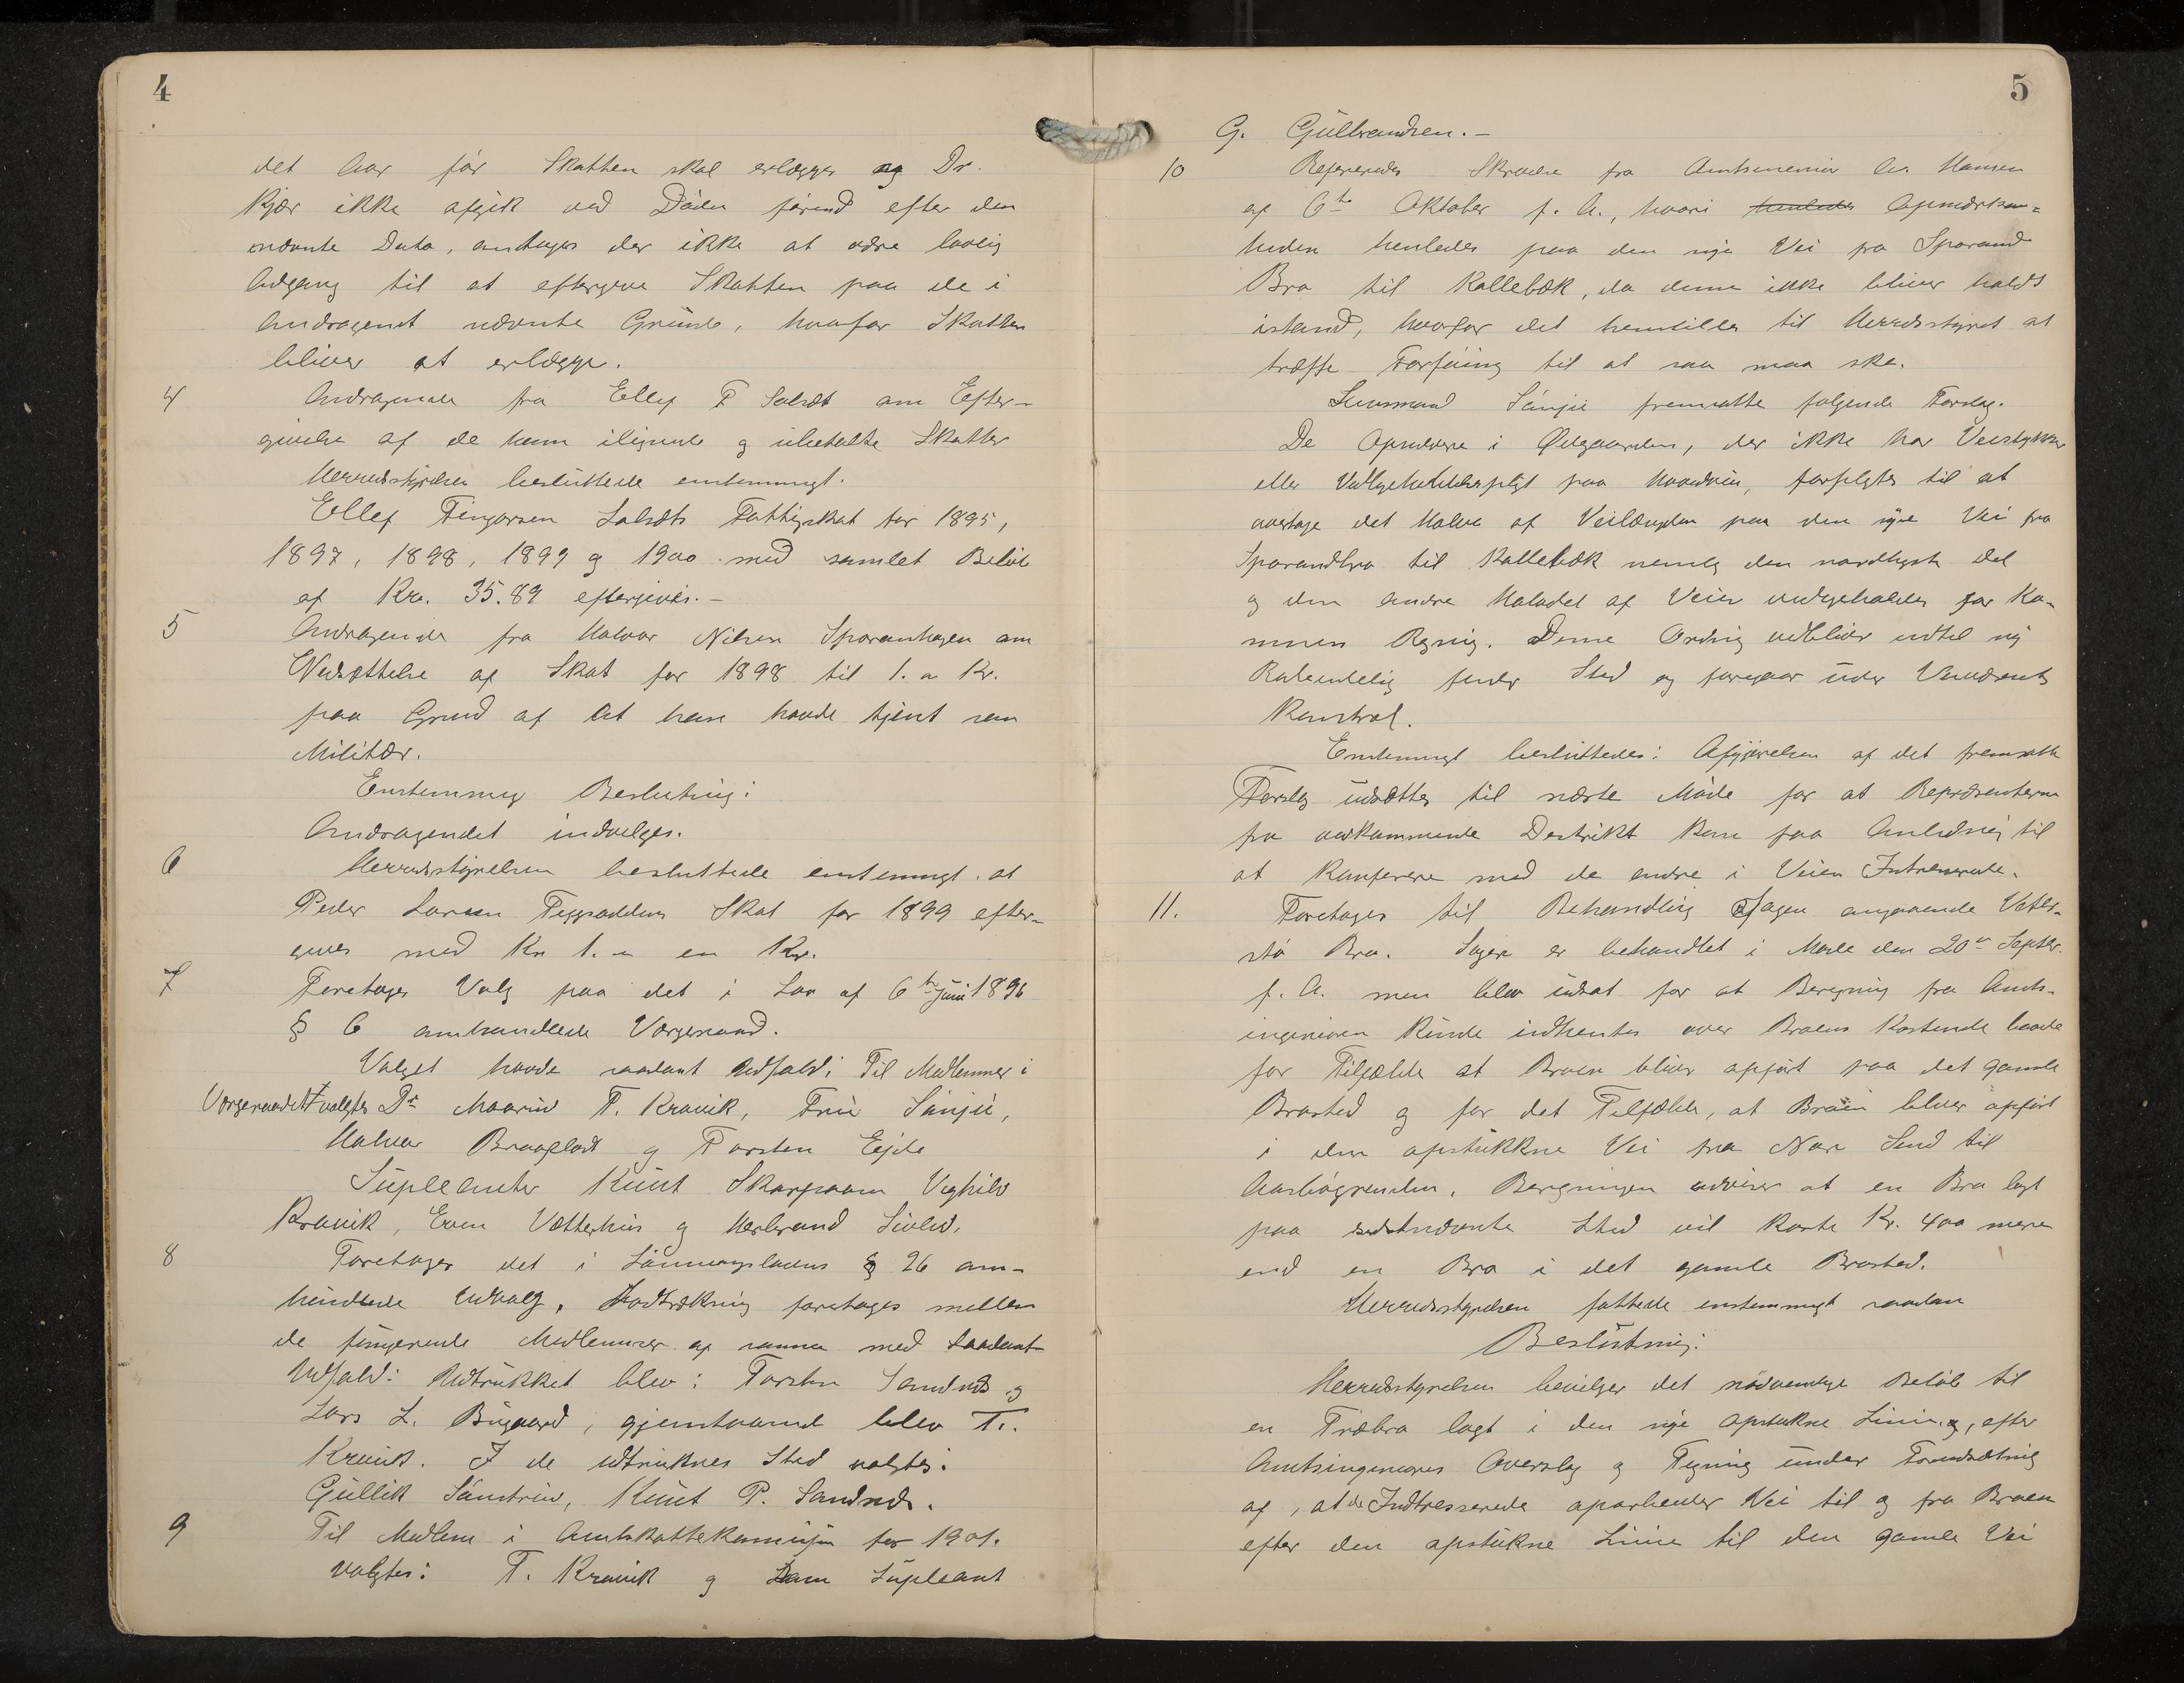 4
det Aar før Skatten skal erlægges og Dr.
Kjær ikke afgik ved Døden førend efter den
nævnte Dato, antages der ikke at være lovlig
Adgang til at eftergive Skatten paa de i
Andragendet nævnte Grunde, hvorfor Skatten
bliver at erlægge.
4 Andragende fra Ellef F Solsæt om Efter-
givelse af de ham ilignede og ubetalte Skatter
Herredsstyrelsen besluttede enstemmigt.
Ellef Fingarsen Solsæts Fattigskat for 1895,
1897, 1898, 1899 og 1900 med samlet Beløb
af Kr. 35.89 eftergives.-
5 Andragende fra Halvor Nilsen Sporanhagen om
Nedsættelse af Skat for 1898 til 1. a Kr.
paa Grund af At han havde tjent som
Militær.
Enstemmig Beslutning:
Andragendet indvilges.
6 Herredsstyrelsen besluttede enstemmigt at
Peder Larsen Skat for 1899 efter-
gives med Kr 1. - en Kr.
7 Foretages Valg paa det i Lov af 6te Juni 1896
§ 6 omhandlede Værgeraad.
Valget havde saadant Udfald: Til Medlemmer i
Vergeraadet valgtes Dr Maariv T. Kravik, Fru Sønju,
Halvor Braaflodt og Torsten Eide
Supleanter Knut Skarpaam Veghild
Kravik, Even Vætterhus og Herbrand Livled.
8 Foretages det i Lønningslovens § 26 om-
handlede Udvalg. Lodtrækning foretages mellem
de fungerende Medlemmer af samme med saadant
Udfald: Udtrukket blev: Torsten Sandnes og
Lars L. Bugaard, gjenstaaende blev T.
Kravik. I de udtruknes Sted valgtes:
Gullik Søndriv, Knut P. Sandnæs.
9 Til Medlem i Amtskattekomisjon for 1901.
valgtes: T. Kravik og som Supleant
5
G. Gulbrandsen.-
10 Refereredes Skrivelse fra Amtsingeniør Hansen
af 6te Oktober f. A., hvori henledes Opmærksom-
heden henledes paa den nye Vei fra Sporand
Bro til Kallebæk, da denne ikke bliver holdt
istand, hvorfor det henstilles til Herredsstyret at
træffe Forføining til at saa maa ske.
Lensmand Sønju fremsatte følgende Forslag.
De Opsiddere i Ødegaarden, der ikke har Veistykker
eller Vedligeholdelsespligt paa Hovedvei, forpligtes til at
overtage det Halve af Veilængden paa den nye Vei fra
Sporandbro til Kallebæk nemlig den nordligste del
og den andre Halvdel af Veien vedligeholdes for Ko-
munens Regning. Denne Ordning vedbliver indtil ny
Rodeindeling finder Sted og foregaar under Vei
Kontrol.
Enstemmigt besluttedes: Afgjørelsen af det fremsatte
Forslag udsættes til næste Møde for at Repræsenterne
fra vedkommende Destrikt kan faa Anledning til
at Konferere med de andre i Veien Intreserede.
11. Foretages til Behandling Sagen angaaende
Bro. Sagen er behandlet i Møde den 20de Septbr.
f. A. men blev udsat for at Beregning fra Amts-
ingeniøren kunde indhentes over Broens Kostende baade
for Tilfælde at Broen bliver opført paa det gamle
Brosted og for det Tilfælde, at Broen bliver opført
i den opstukkne Vei fra Nore Sund til
Aasbøgrenden. Beregningen udviser at en Bro lagt
paa sidstnævnte Sted vil koste Kr. 400 mere
end en Bro i det gamle Brosted.
Herredsstyrelsen fattede enstemmigt saadan
Beslutning:
Herredsstyrelsen bevilger det nødvendige Beløb til
en Træbro lagt i den nye opstukne Linie, efter
Amtsingeniørens Overslag og Tegning under Forudsætning
af, at de Indtresserede oparbeider Vei til og fra Broen
efter den opstukne Linie til den gamle Vei